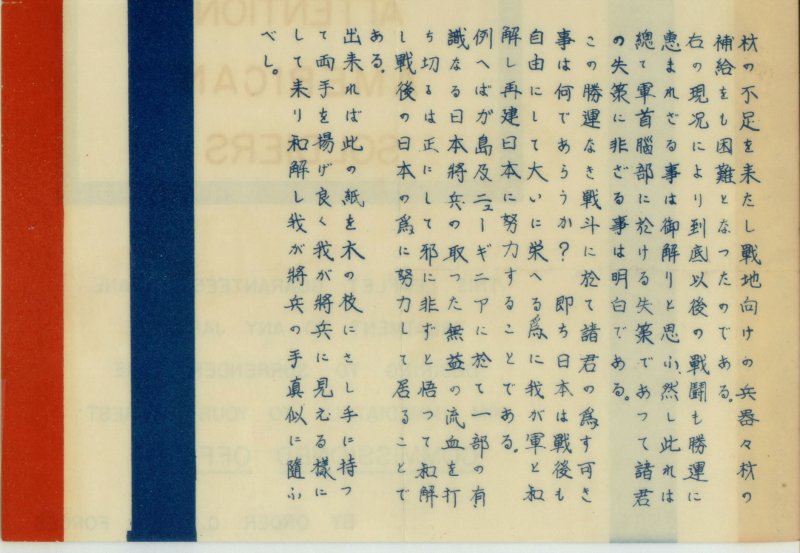 材の不足を来たし戰地向けの兵器々材の
補給をも困難となつたのである。
右の現況により到底以後の戰闘も勝運に
恵まれざる事は御解りと思ふ、然し此れは
總て軍首腦部に於ける失策であつて諸君
の失策に非ざる事は明白である。
この勝運なき戰斗に於て諸君の爲す可き
事は何であらうか？ 即ち日本は戰後も
自由にして大いに栄へる爲に我が軍と和
解し再建日本に努力することである。
例へばガ島及ニューギニアに於て一部の有
識なる日本將兵の取つた無益の流血を打
ち切るは正にして邪に非ずと悟つて和解
し戰後の日本の爲に努力して居ることで
ある。
出来れば此の紙を木の枝にさし手に持つ
て両手を揚げ良く我が將兵に見える様に
して来り和解し我が將兵の手真似に隨ふ
べし。